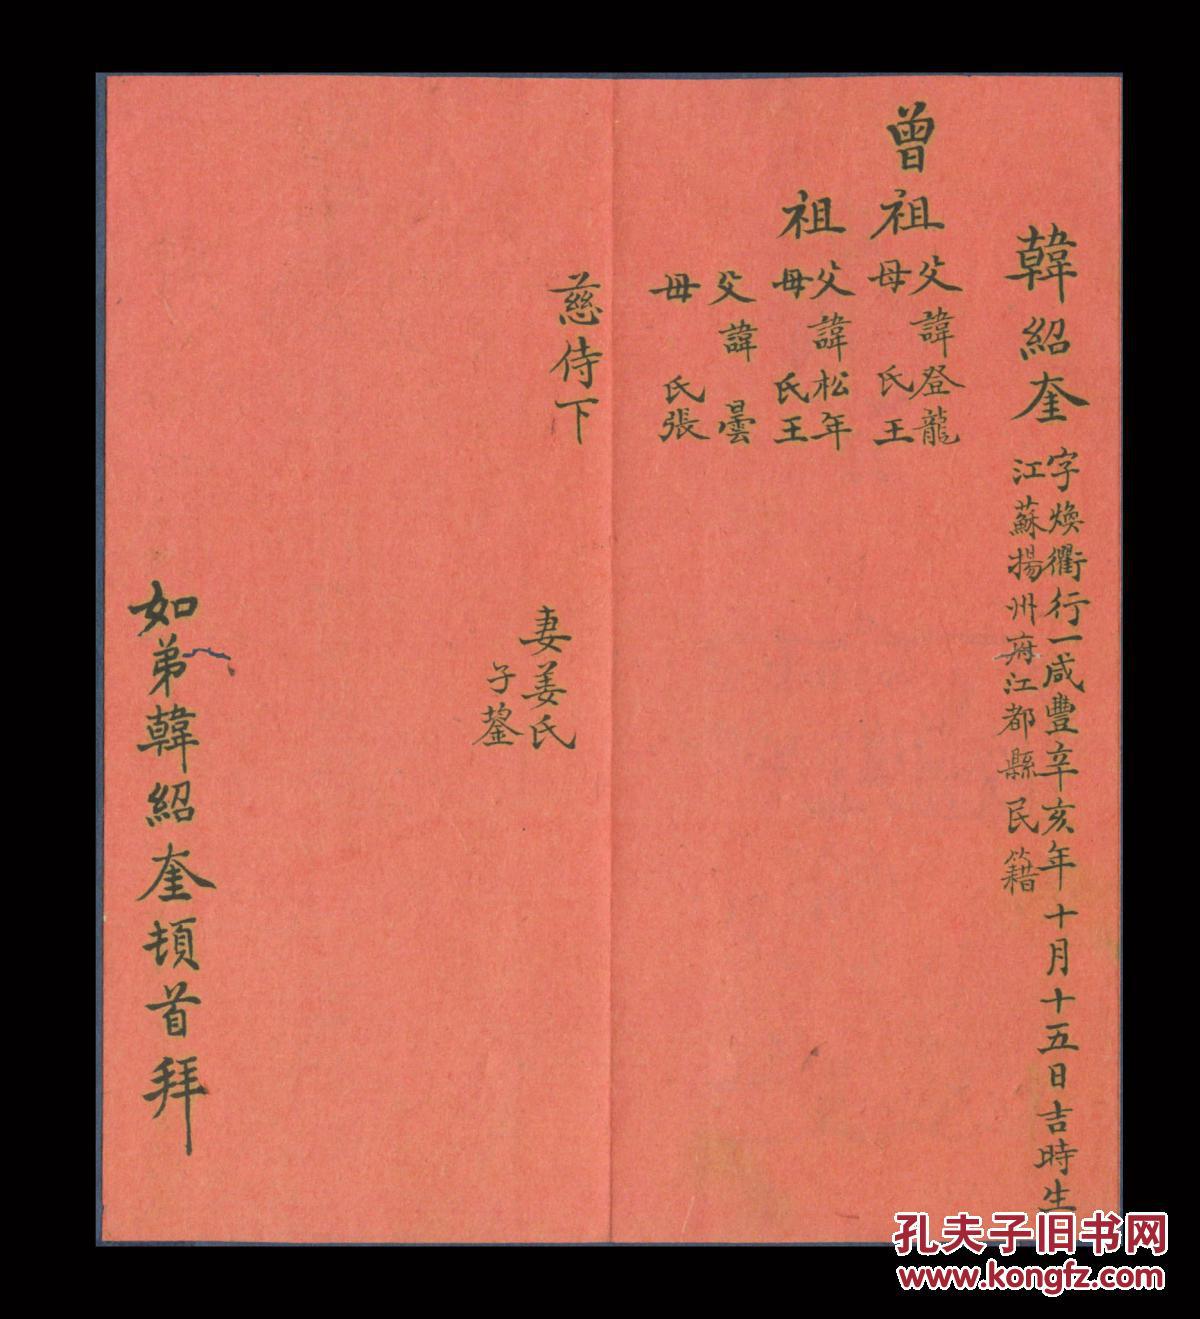 韓紹奎
字煥衢行一咸豐辛亥年十月十五日吉時生
江蘇揚州府江都縣民籍
曾祖
父諱登龍
母 氏王
祖
父諱松年
母 氏王
父諱 曇
母 氏張
慈侍下
妻姜氏
子蓥
如弟韓紹奎頓首拜
孔夫子旧书网
www.kongfz.com